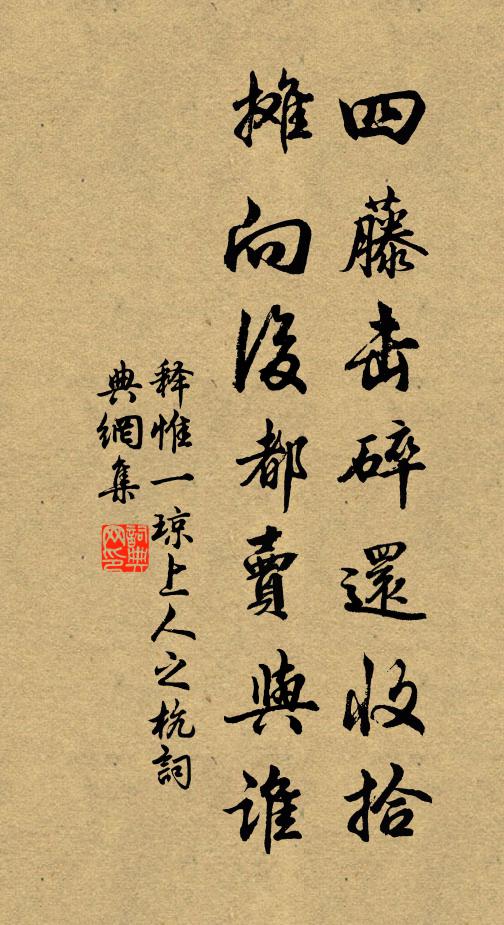 四藤击碎還收拾
摊向後都賣與谁
释惟一琼上人之杭詞
典網集
詞典網印